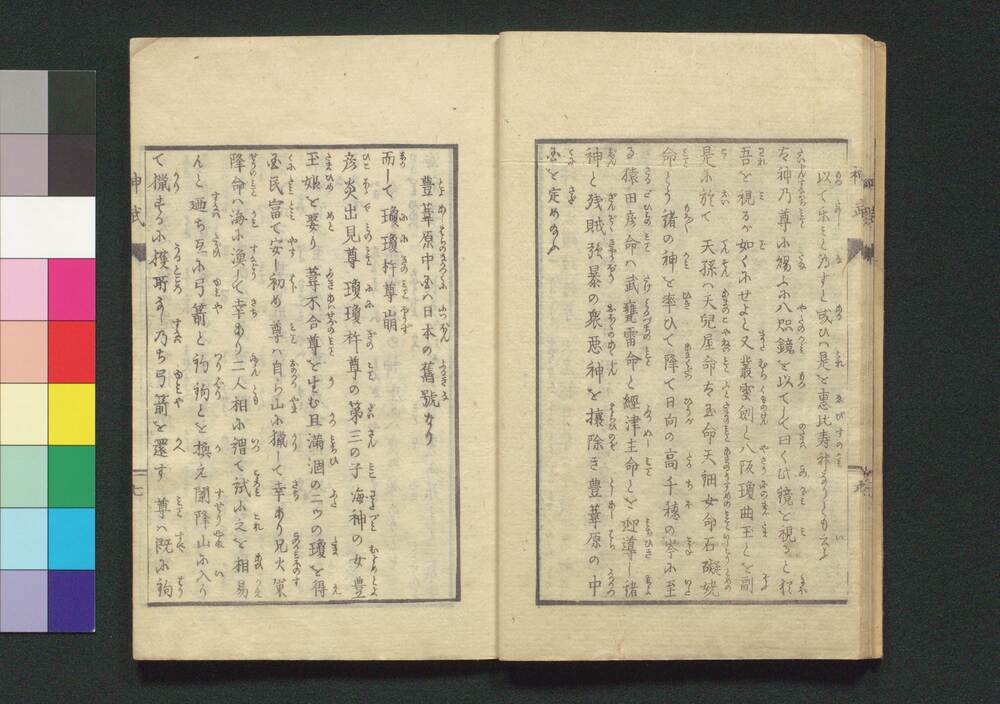 以て楽みと乃すと或ひハ是を恵比寿神なりともえふ
右神乃尊に賜ふ八咫鏡を以てして曰く此鏡を視ること猶
吾を視るが如くにせよと又叢雲剣と八阪瓊曲玉とを副
是に於て 天孫ハ天児屋命太玉命天細女命石凝姥
命とう諸の神を率ひて降て日向の高千穂の峯に至
る猿田彦命ハ武甕雷命と經津主命とを迎導し諸
神と残賊強暴の衆悪神を攘除き豊葦原の中
国を定め
豊葦原中国ハ日本の舊號なり
而して 瓊瓊杵尊崩
彦炎出見尊 瓊瓊杵尊の第三の子 海神の女豊
玉娘を娶り 葺不合尊を生む且満涸の二ツの瓊を得
国民富て安し初め 尊ハ自ら山に獵して幸あり兄火
降命ハ海に漁して幸あり二人相に謂て試に之を相易
んと廼ち互に弓箭と釣鉤とを換え闌降山に入り
て獵するに獲所なし乃ち弓箭を還す 尊ハ既に鉤
神武
七